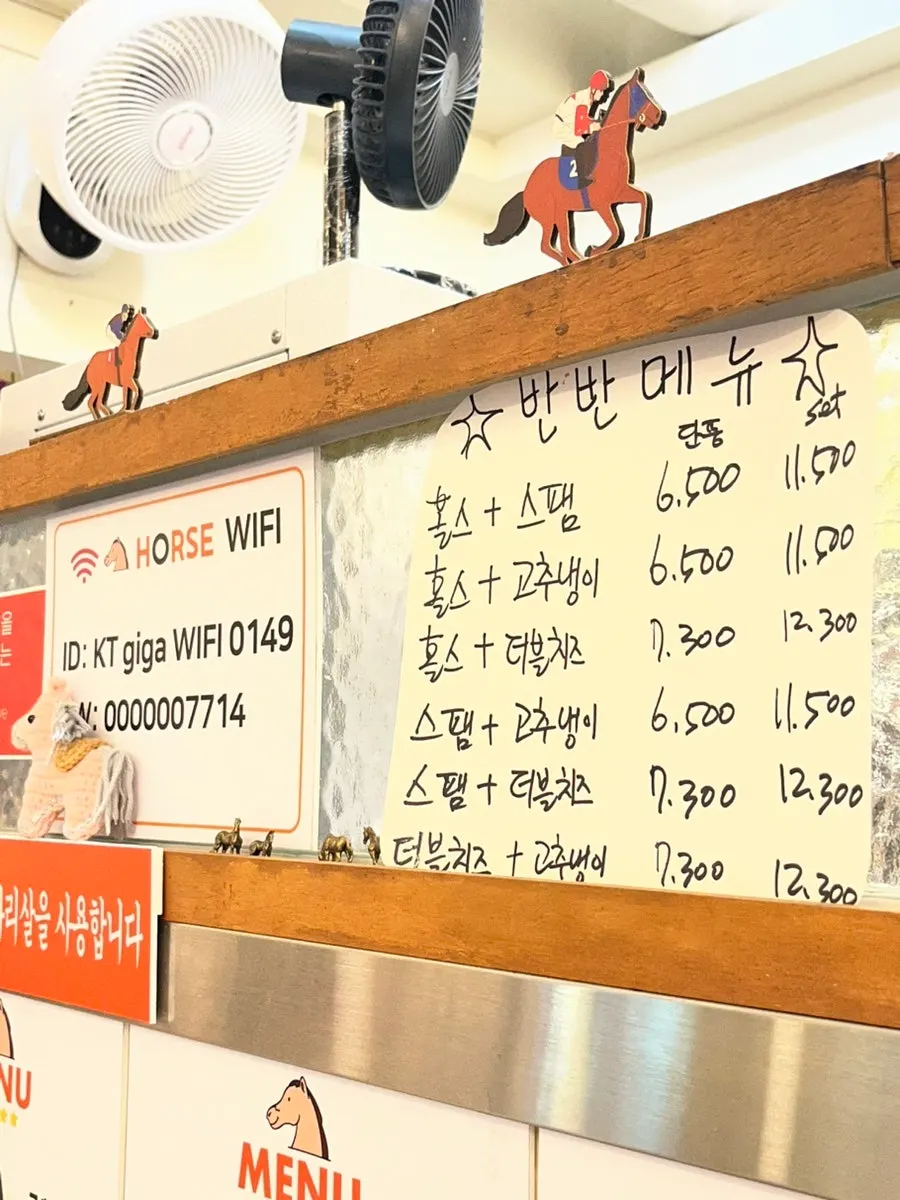 2
☆ 반반 메뉴 ☆
단품 set
홀스 + 스팸 6.500 11.500
홀스 + 고추냉이 6.500 11.500
홀스 + 더블치즈 7.300 12.300
스팸 + 고추냉이 6.500 11.500
스팸 + 더블치즈 7.300 12.300
더블치즈 + 고추냉이 7.300 12.300
HORSE WIFI
ID: KT giga WIFI 0149
W: 0000007714
을
는
리살을 사용합니다
NU
MENU